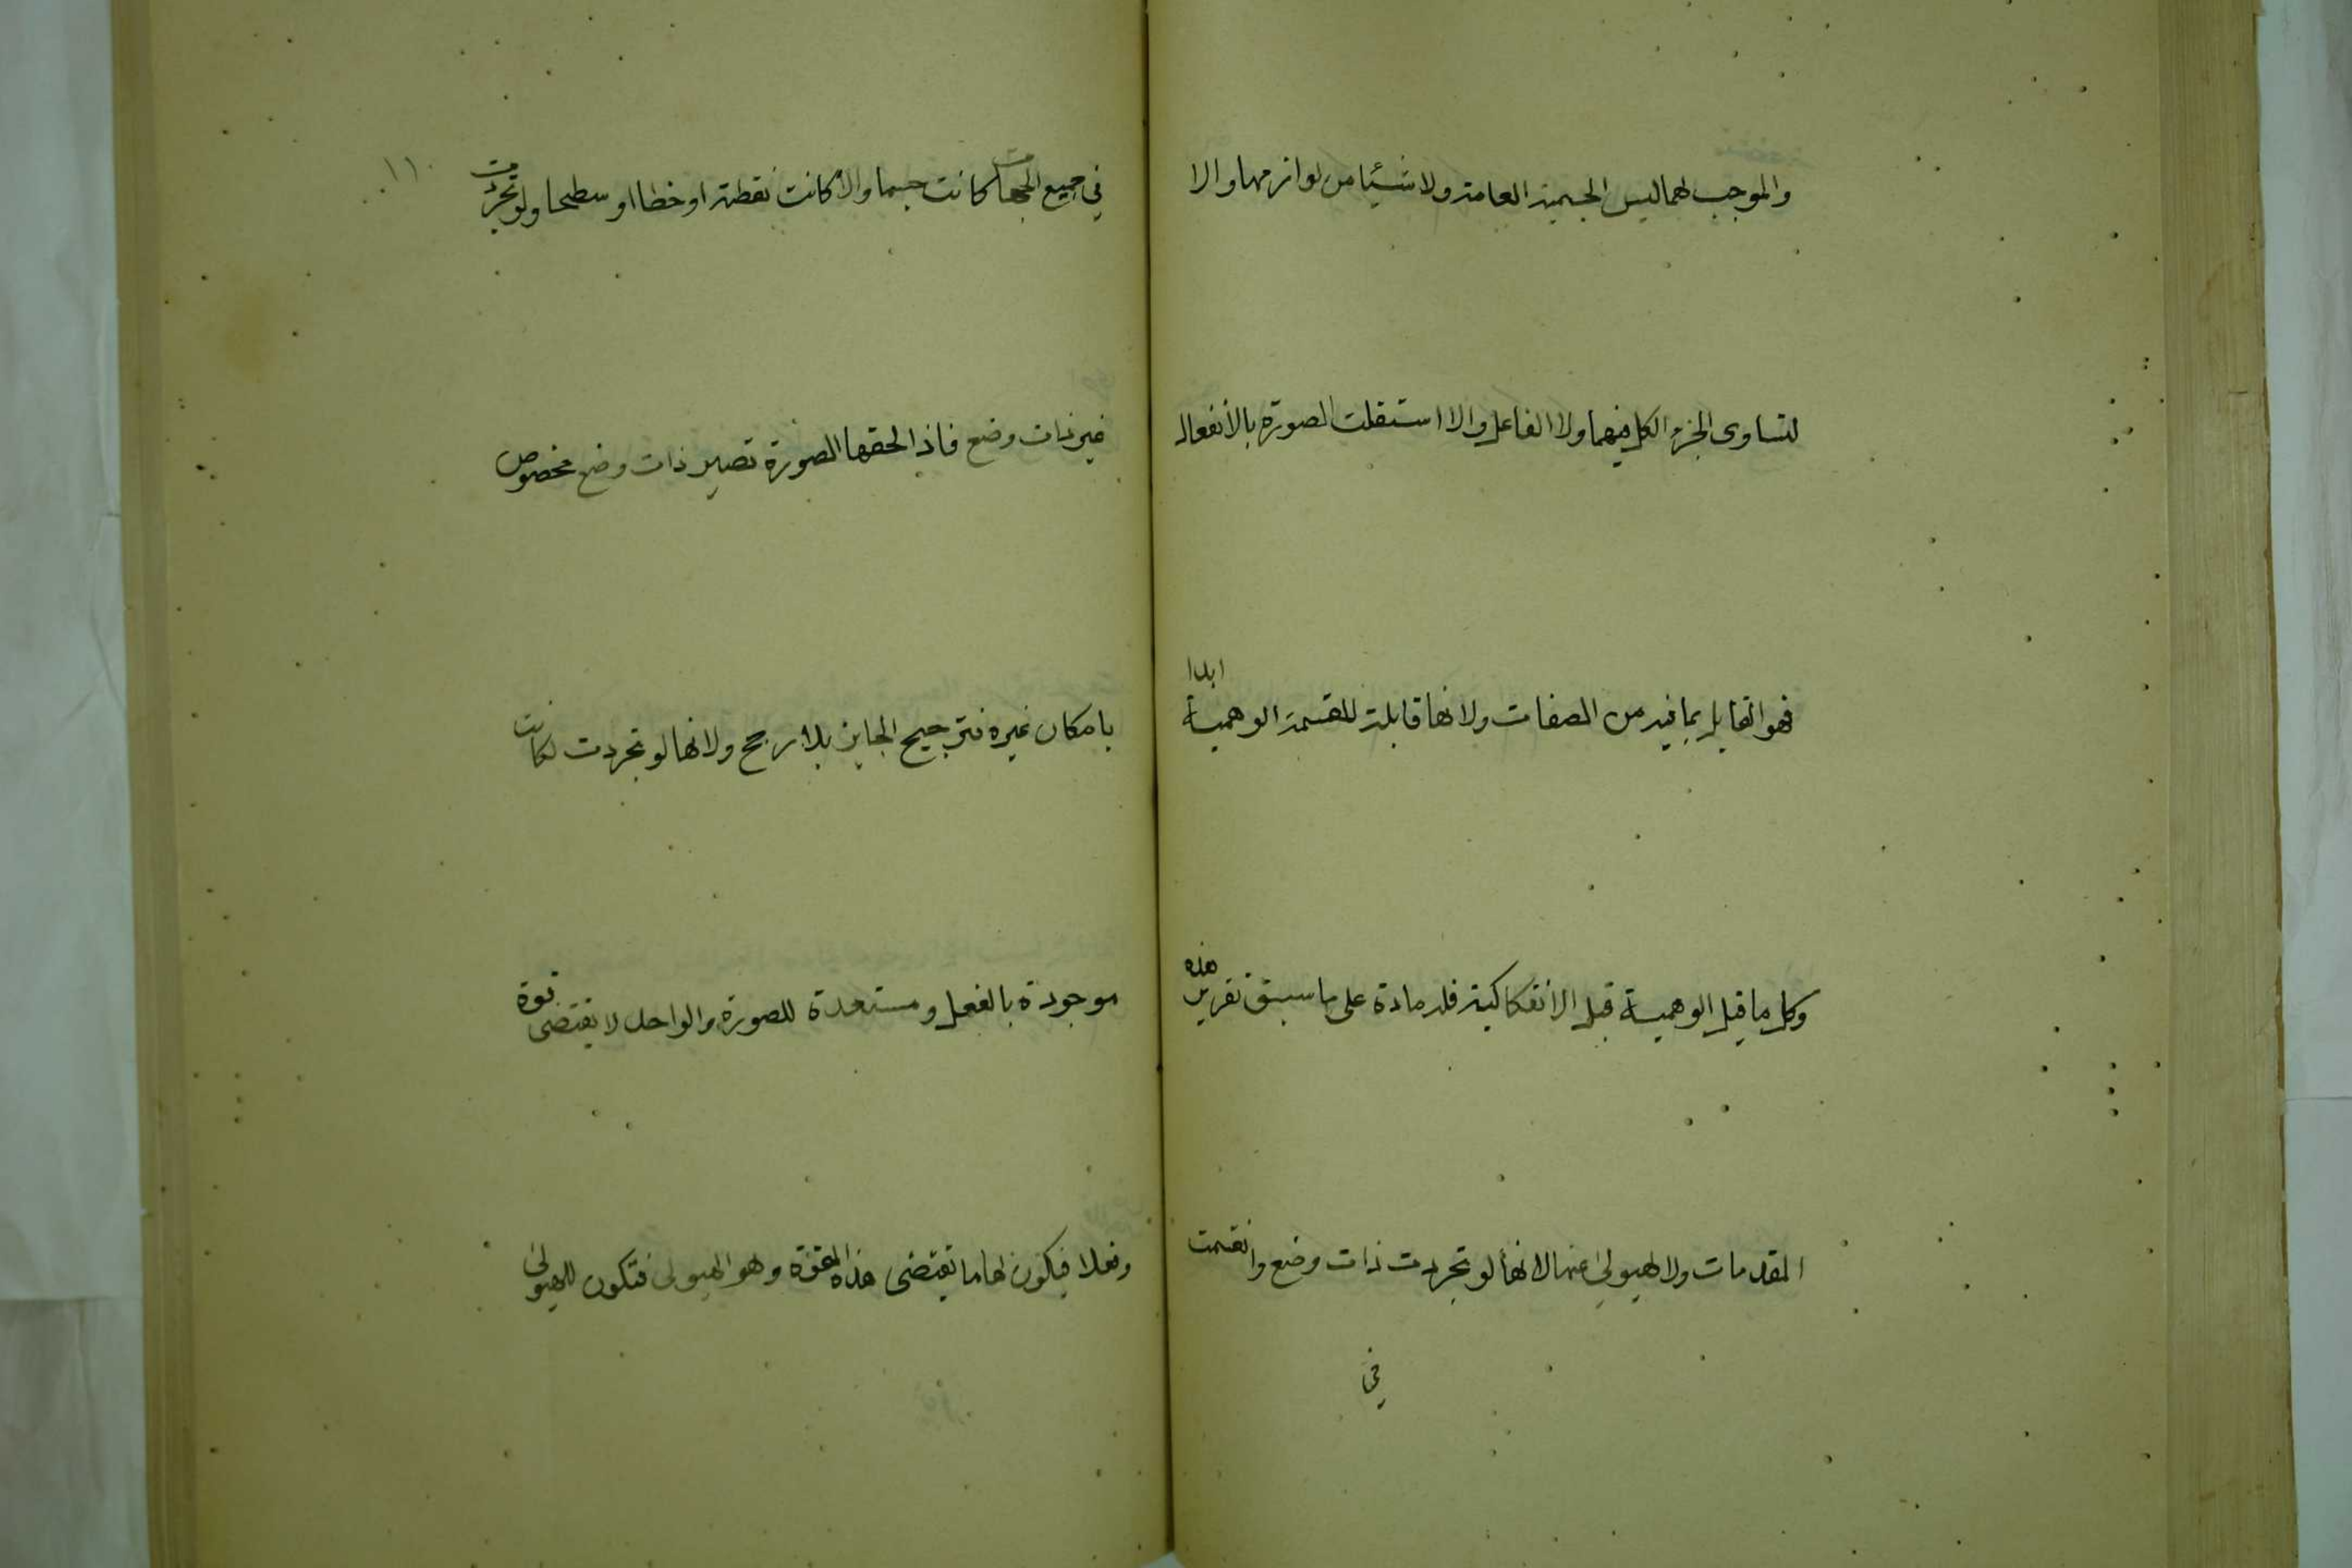 والموجب لهما ليس الجسمية العامة ولا شيئا من لوازمها والا
لتساوى الجزء الكل فيهما ولا الفاعل والا استقلت الصورة بالأنفعال
فهو القابل بما فيه من الصفات ولانها قابلة للقسمة الوهمية ابدا
وكل ما قبل الوهمية قبل الانفكاكية فله مادة على ما سبق تقرير هذه
المقدمات ولا الهيولى عنها لانها لو تجردت ذات وضع وانقسمت
في
في جميع الجهات كانت جسما والا كانت نقطة او خطا او سطحا ولو تجردت
١١
غير ذات وضع فاذا لحقها الصورة تصير ذات وضع مخصوص
بامكان غيره فترجيح الجايز بلا مرجح ولانها لو تجردت لكانت
موجودة بالفعل ومستعدة للصورة والواحد لا يقتضى قوة
وفعلا فيكون لها ما يقتضى هذه القوة وهو الهيولى فتكون للهيولى